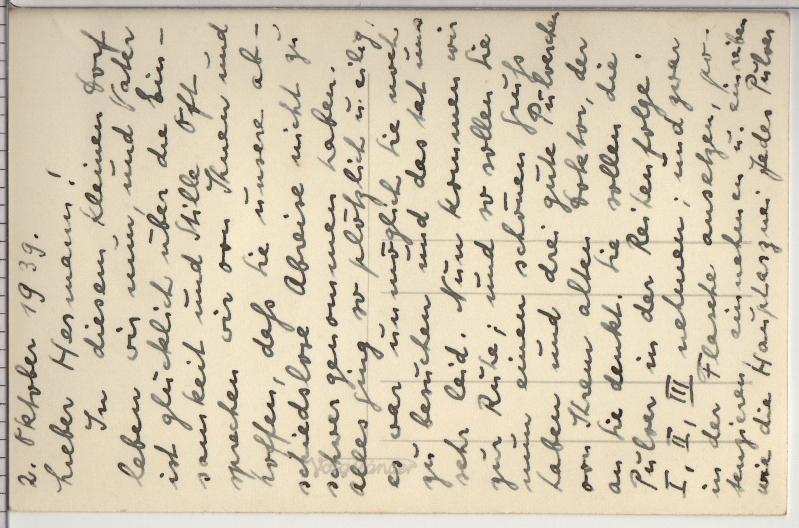 2. Oktober 1939.
Lieber Hermann!
In diesem kleinen Dorf
leben wir nun, und Vater
ist glücklich über die Ein-
samkeit und Stille. Oft
sprechen wir von Ihnen und
hoffen, daß Sie unsere ab-
schiedslose Abreise nicht zu
schwer genommen haben.
alles ging so plötzlich u. eilig,
es war unmöglich Sie noch
zu besuchen und das tat uns
sehr leid. Nun kommen wir
zur Ruhe; und so sollen Sie
nun einen schönen Gruß
haben und drei gute Pülverchen
von Ihrem alten Doktor, der
an Sie denkt. Sie sollen die
Pulver in der Reihenfolge.
I, II, III nehmen; und zwar
in der Flasche ansetzen, po-
tenzieren, einnehmen u. einreiben
wie die Hauptarznei jedes Pulver
Voigtländer